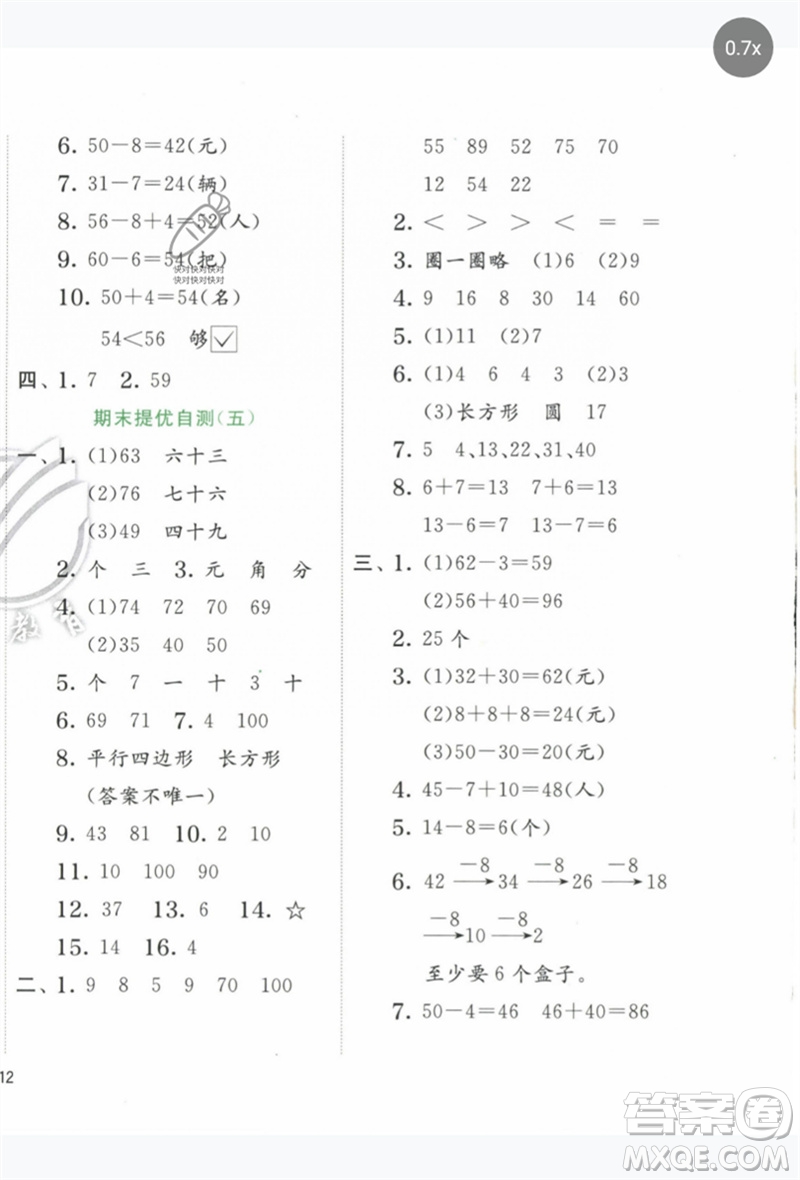 0.7x
6. 50－8＝42(元)
7. 31－7＝24(辆)
8. 56－8＋4＝52(人)
9. 60－6＝54(把)
快对快对快对
快对快对快对
10. 50＋4＝54(名)
54＜56 够 ☑
四、1. 7 2. 59
期末提优自测(五)
一、1. (1)63 六十三
(2)76 七十六
(3)49 四十九
2. 个 三 3. 元 角 分
4. (1)74 72 70 69
(2)35 40 50
5. 个 7 一 十 3 十
6. 69 71 7. 4 100
8. 平行四边形 长方形
(答案不唯一)
9. 43 81 10. 2 10
11. 10 100 90
12. 37 13. 6 14. ☆
15. 14 16. 4
二、1. 9 8 5 9 70 100
12
55 89 52 75 70
12 54 22
2. ＜ ＞ ＞ ＜ ＝ ＝
3. 圈一圈略 (1)6 (2)9
4. 9 16 8 30 14 60
5. (1)11 (2)7
6. (1)4 6 4 3 (2)4
(3)长方形 圆 17
7. 5 4、13、22、31、40
8. 6＋7＝13 7＋6＝13
13－6＝7 13－7＝6
三、1. (1)62－3＝59
(2)56＋40＝96
2. 25 个
3. (1)32＋30＝62(元)
(2)8＋8＋8＝24(元)
(3)50－30＝20(元)
4. 45－7＋10＝48(人)
5. 14－8＝6(个)
6. 42 －8→ 34 －8→ 26 －8→ 18
－8→ 10 －8→ 2
至少要 6 个盒子。
7. 50－4＝46 46＋40＝86
教育
答案圈
MXQE.COM